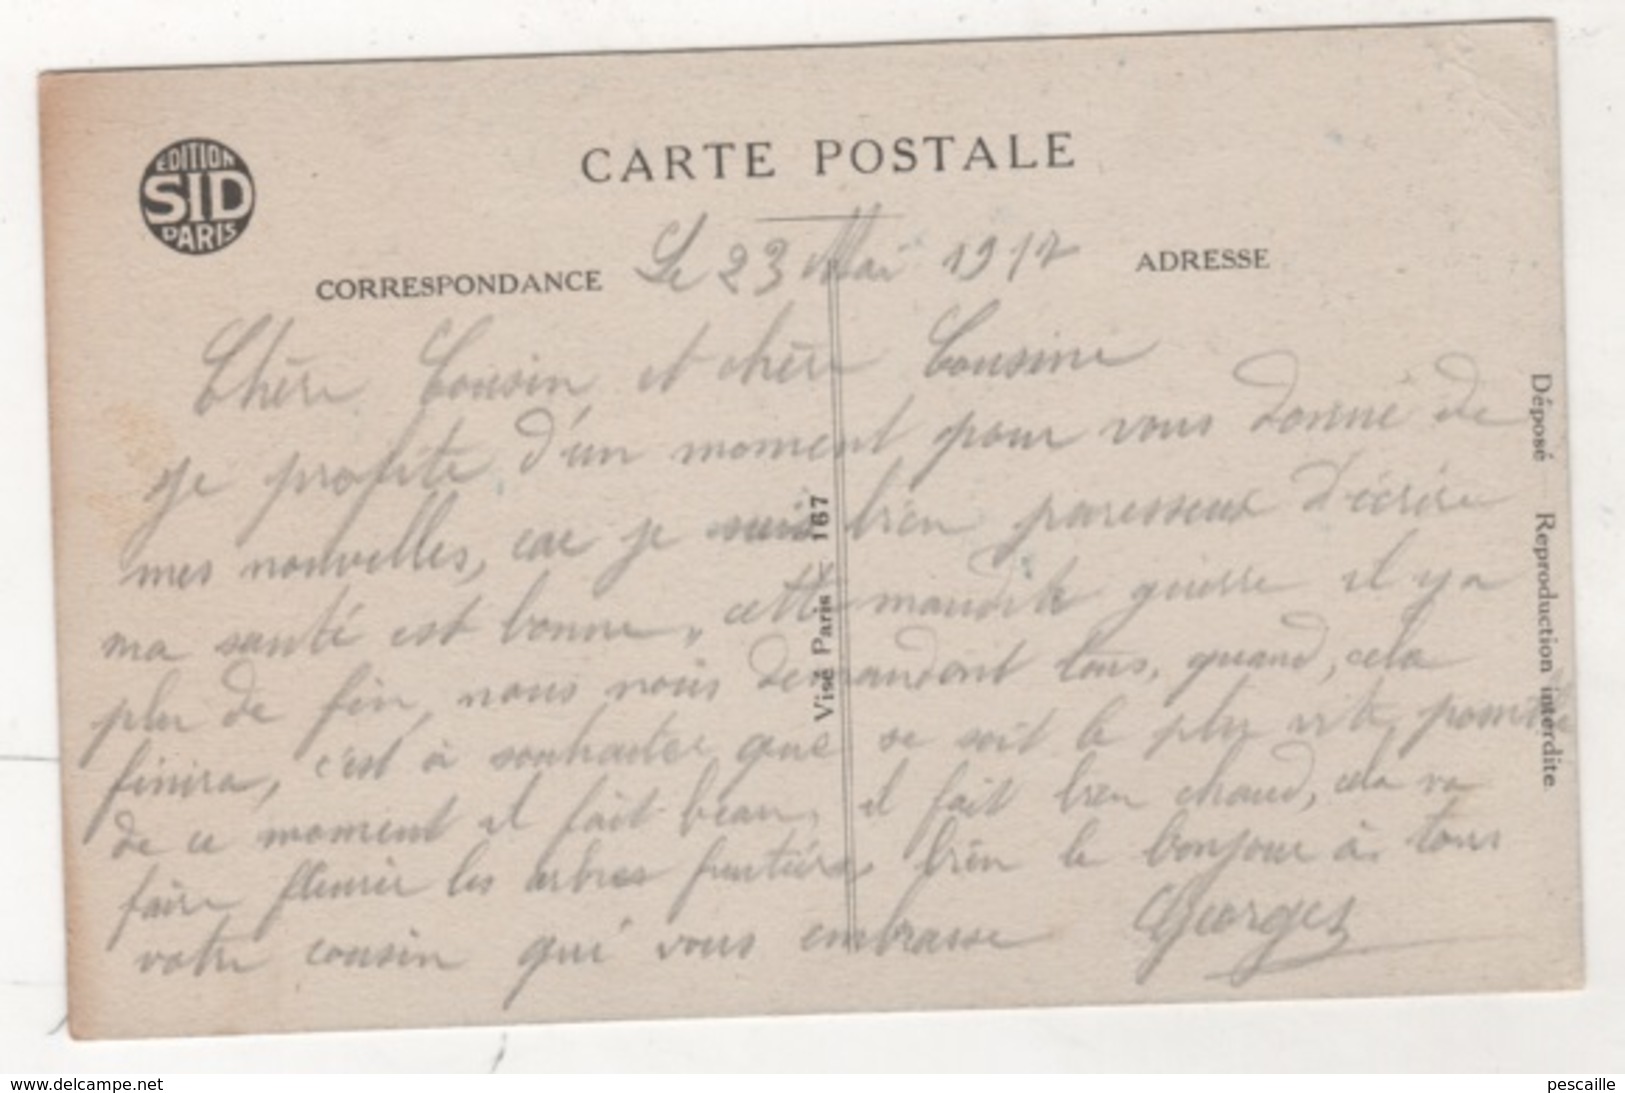 EDITION
SID
PARIS
CARTE POSTALE
CORRESPONDANCE
Le 23 Mai 1917
ADRESSE
Chère Cousin et chère Cousine
je profite d'un moment pour vous donné de
mes nouvelles, car je suis bien paresseux d'écrire
ma santé est bonne, cette maudite guerre il y a
plu de fin, nous nous demandont tous, quand, cela
finira, c'est à souhaiter que se soit le plu vite,
de ce moment il fait beau, il fait bien chaud, cela va
faire fleurir les arbres fruitiers, bien le bonjour à tous
votre cousin qui vous embrasse
Georges
Visé Paris 167
Déposé Reproduction interdite
www.delcampe.net
pescaille